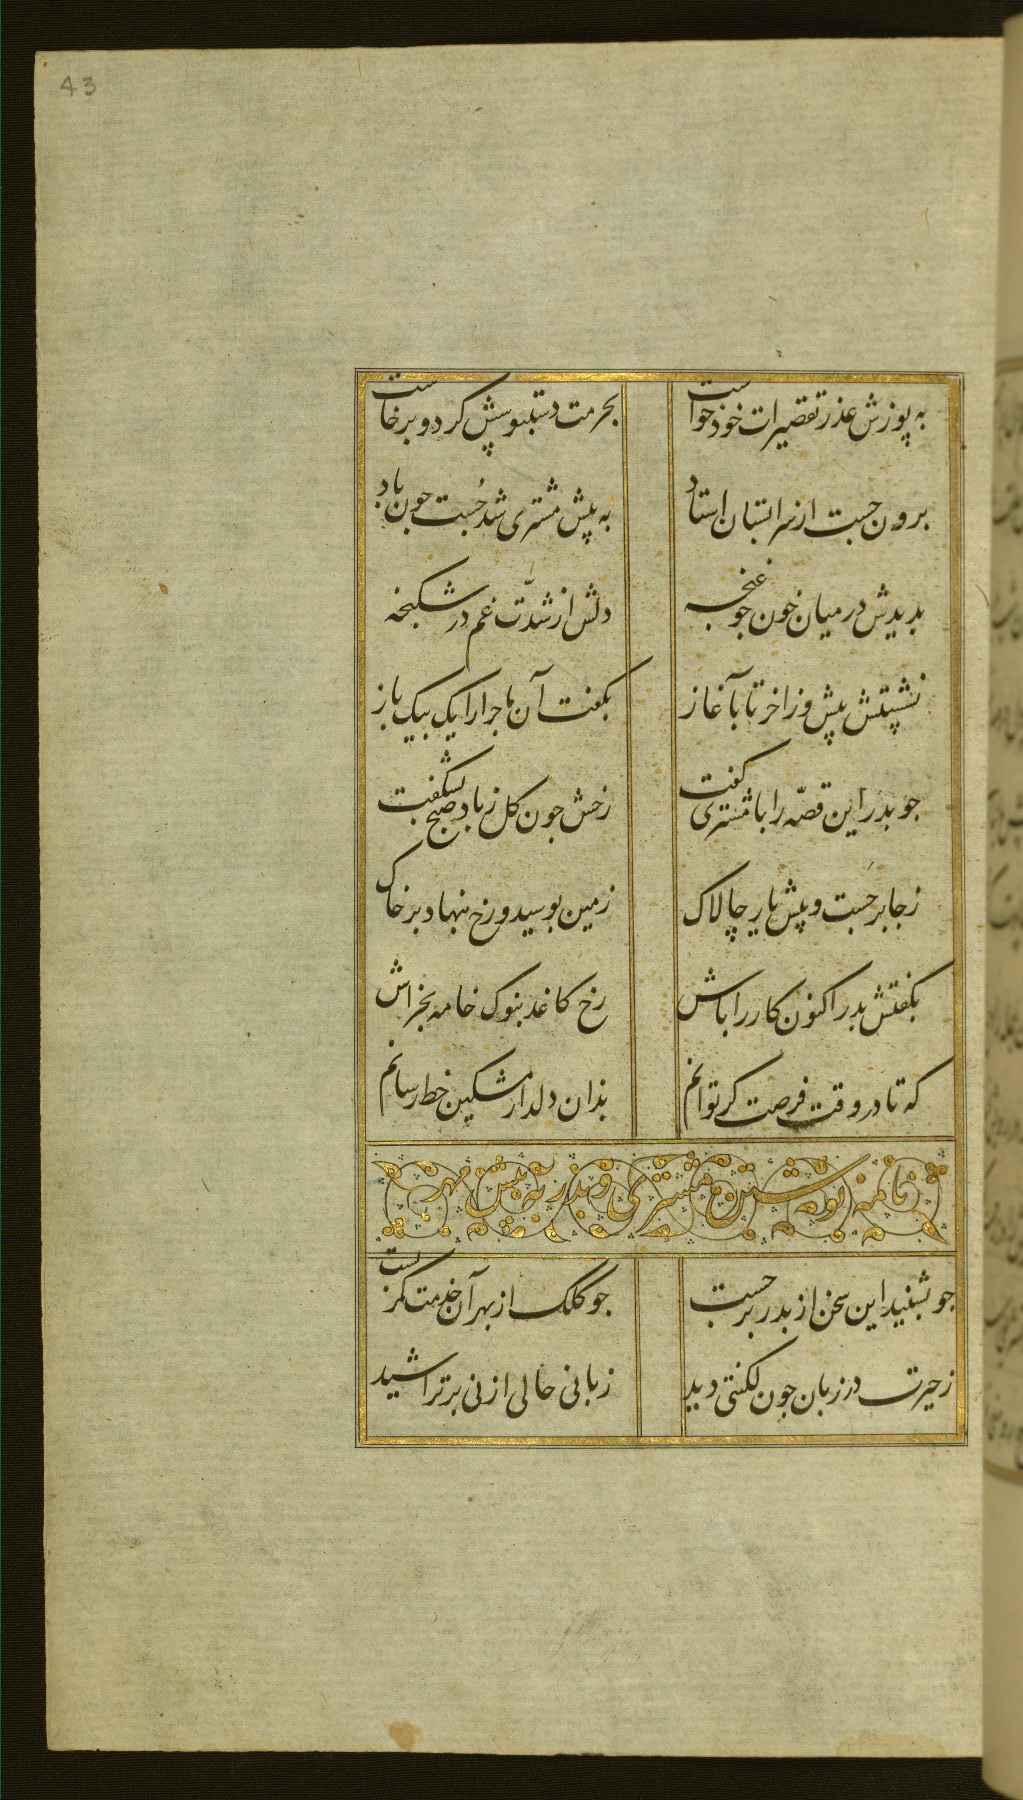 43
به پوزش عذر تقصیرات خوذ خواست بحرمت دستبوسیش کرد و برخاست
برون جست از سرابستان استاد به پیش مشتری شد جُست جون باد
بدیدش در میان خون جو غنجه دلش از شدّت غم در شکنجه
نشستش پیش وز اخر تا بآغاز بکفت آن ماجرا را یک بیک باز
جو بدر این قصّه را با مشتری کفت رخش جون کل ز باد صبح بشکفت
ز جا برجَست و پیش یار چالاک زمین بوسید و رخ بنهاد بر خاک
بکفتش بدر اکنون کار را باش رخ کاغذ بنوک خامه بخراش
که تا در وقت فرصت کر توانم بذان دلدار مشکین خط رسانم
نامه نوشتن مشتری و بذر به پیش مهر
جو بشنید این سخن از بدر برجست جو کلک از بهر آن خدمت کمر بست
ز حیرت در زبان جون لکنتی دید زبانی حالی از نی بر تراشید